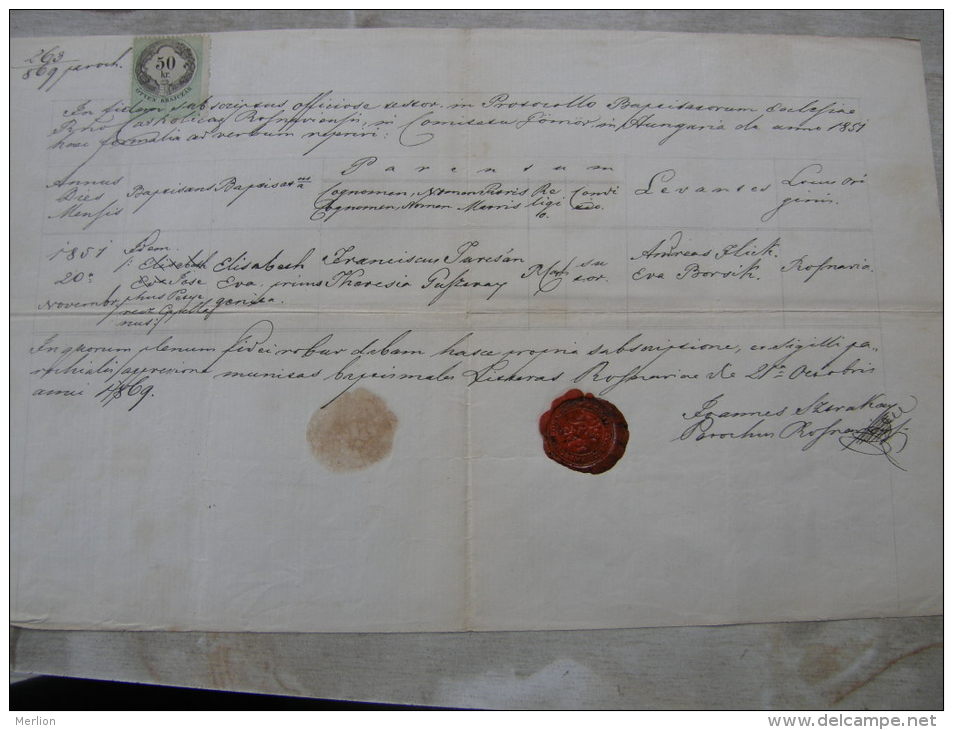 263
869 paroch.
50
kr.
ÖTVEN KRAJCZÁR
In fidem subscriptus officiose testor in Protocollo Baptisatorum Ecclesiae
Catholicae Rosnaviensis, in Comitatu Gömör in Hungaria de anno 1851
haec formalia ad verbum reperiri:
Annus
Dies
Mensis
Baptisans
Baptisatus
a
Parentum
Cognomen, Nomen Patris
Cognomen, Nomen Matris
Re
ligi
o.
Condi
Levantes
Locus Ori
ginis.
1851
20a
Novembr
Idem
Elisabeth
Eva Jose
phus
Elisabeth
Eva, primo
genita.
Franciscus Tursán
Theresia Gusztavay
R. Cath
su
tor.
Andreas Ilik.
Eva Borsik.
Rosnavia.
In quorum plenum fidei robur dabam hasce propria subscriptione, et sigilli pa-
rochialis appressione munitas baptismales Litteras Rosnaviae de 21a Octobris
anni 1869.
Joannes
Parochus
Merlion
www.delcampe.net